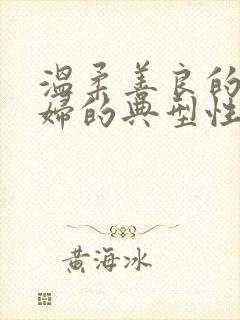 温柔善良的
婦的典型性
黄海冰